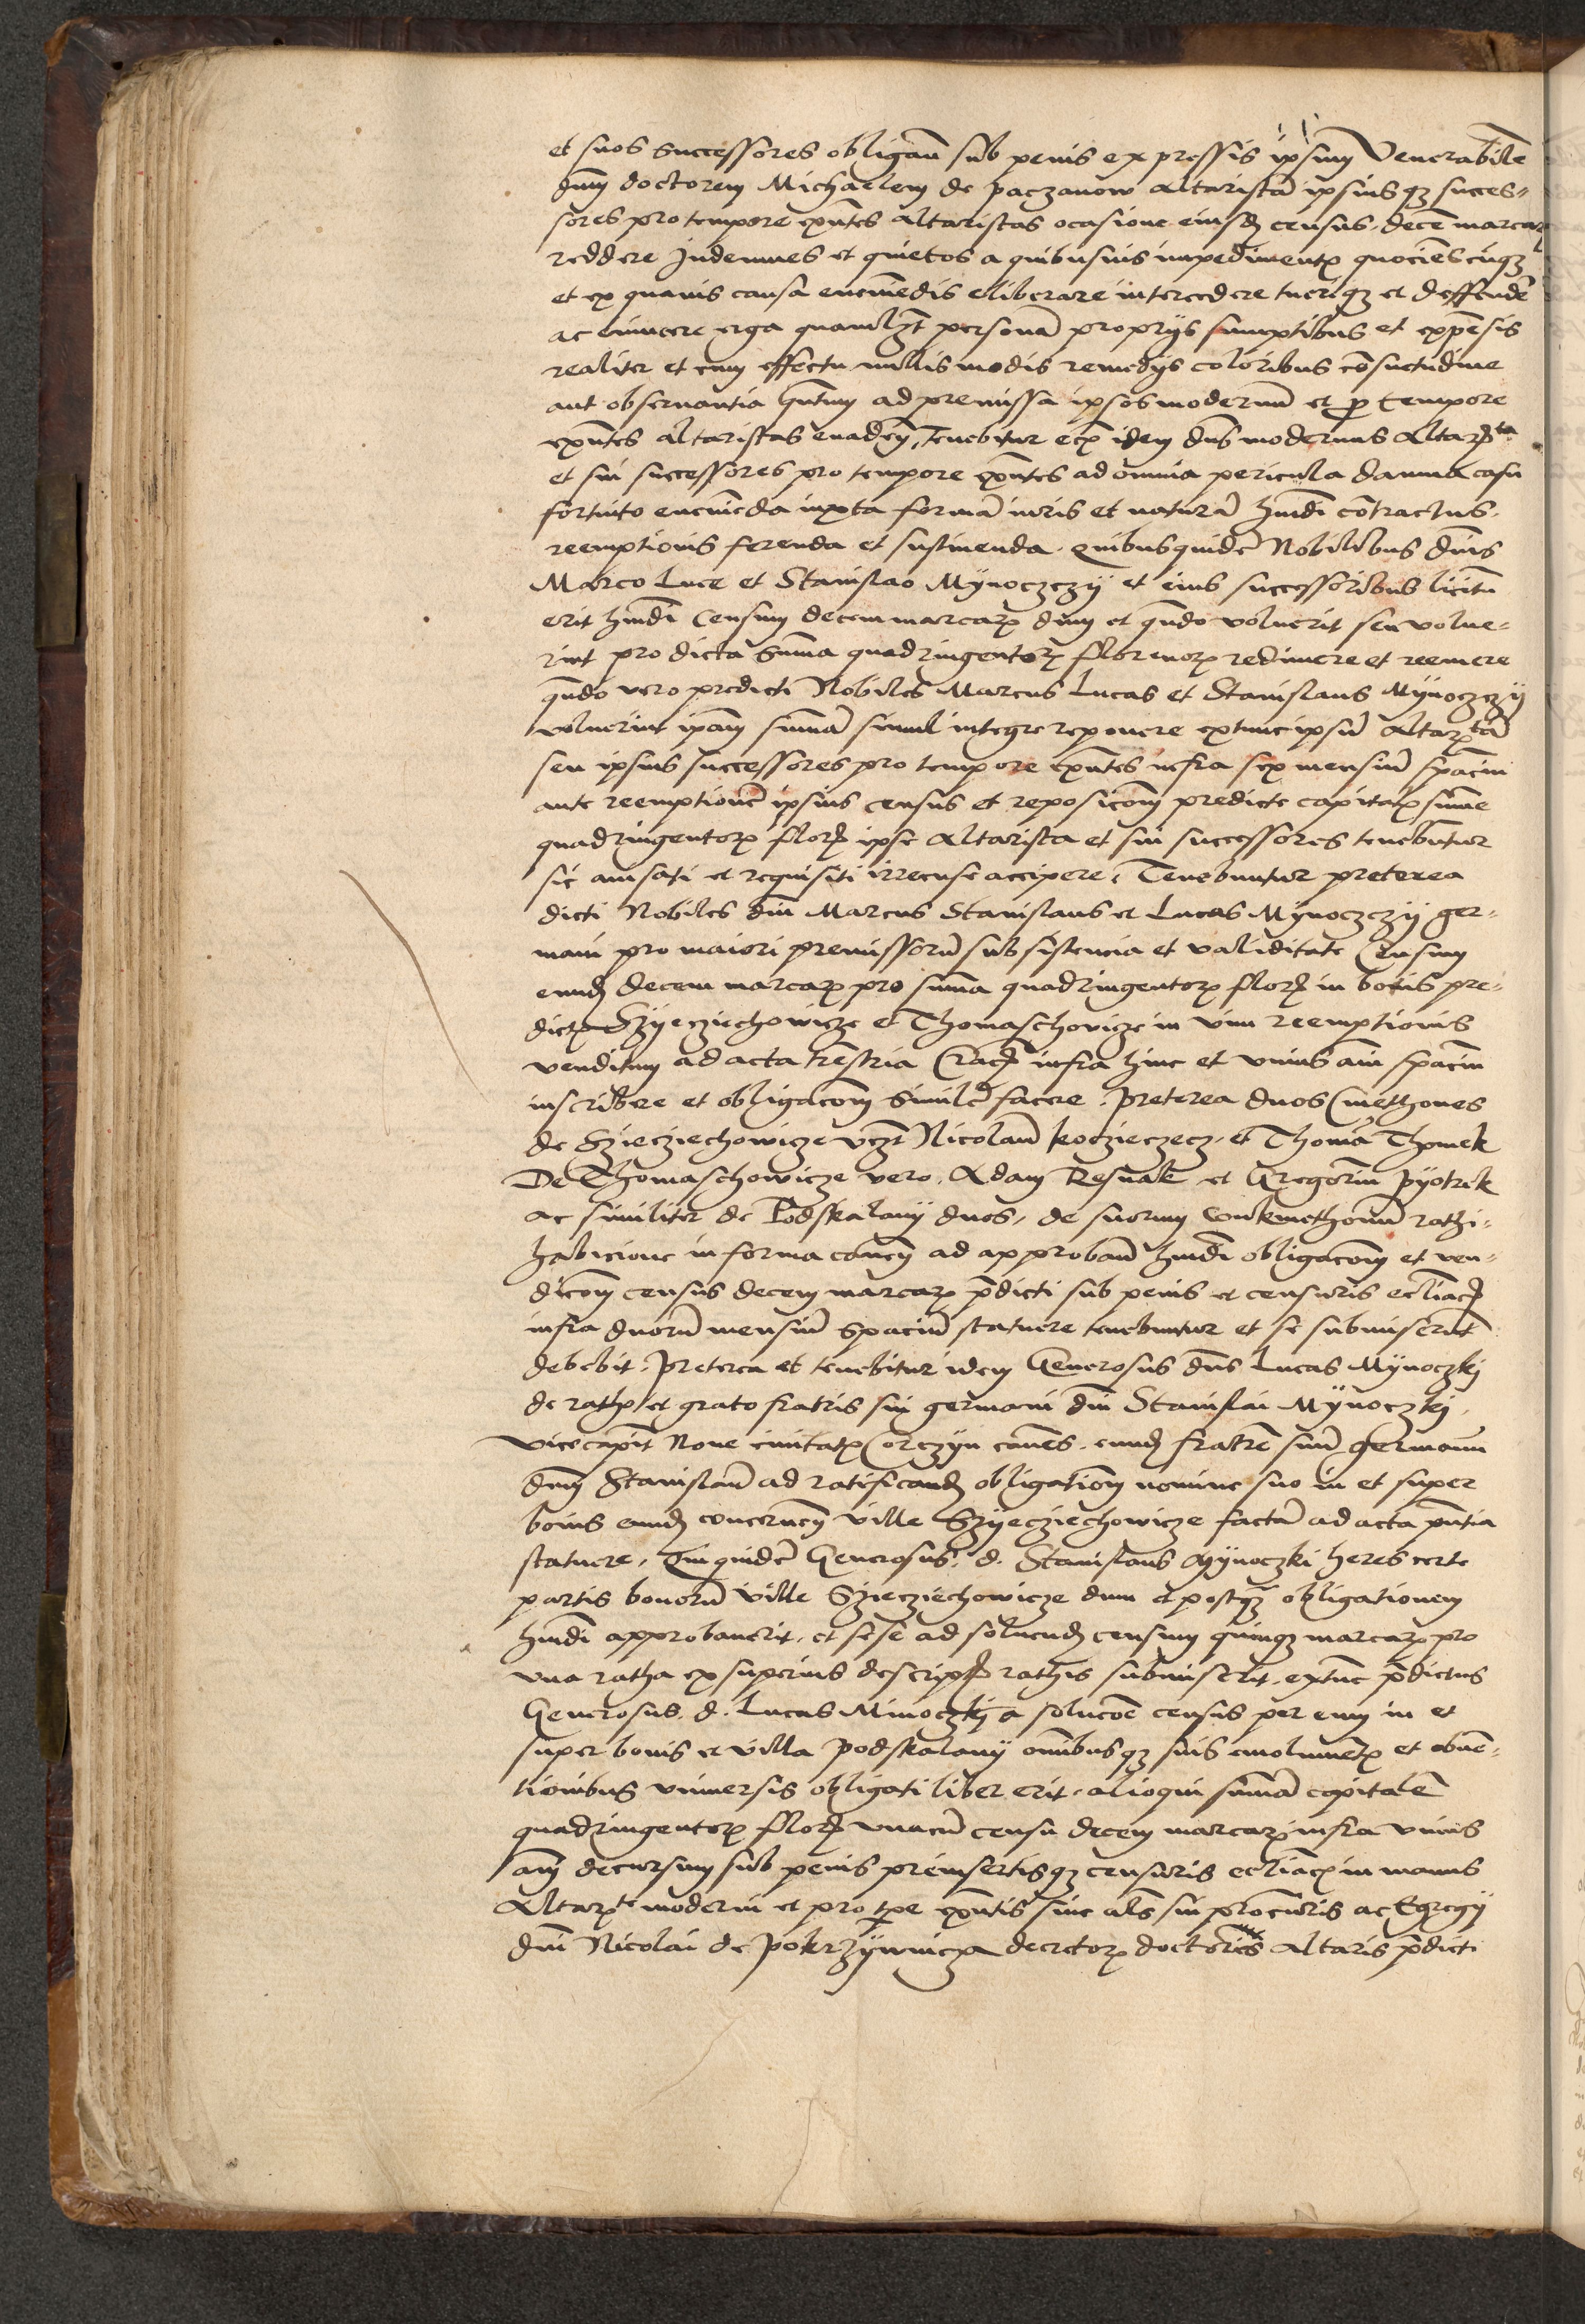 et suos successores obligañ sub penis expressis ipsum Venerabilē
dnm doctorem Michaelem de paczanow altaristā ipsiusqȝ succes-
sores pro tempore exn̄tes altaristas ocasione eiusd census decē marcaꝝ
reddere Indemnes et quietos a quibusuis impedimentꝭ quociēscūqȝ
et ex quauis causa eueniēdis eliberare intercedere tueriqȝ et deffendē
ac euincere erga quamlȝt personā proprijs sumptibus et expēsis
realiter et cum effectu nullis modis remedijs coloribus cōsuetudine
aut obseruantia ad premissa ipsos modernū et ꝓ tempore
exn̄tes altaristas euadeñ, Tenebitur idem dns modernus Altarꝭta
et sui successores pro tempore exn̄tes ad omnia pericula damna casu
fortuito eueniēda iuxta formā iuris et naturā hmōi cōtractus
reemptionis ferenda et sustinenda. Quibusquidē Nobilibus dnis
Marco Luce et Stanislao Mÿnoczczÿ et eius successoribus licitū
erit hmōi Censum decem marcaꝝ dum et qn̄do voluerit seu volue-
rint pro dicta summa quadringentoꝝ florenoꝝ redimere et reemere
qn̄do vero predicti Nobiles Marcus Lucas et Stanislaus Mÿnoczczÿ
voluerint ipam̄ summā simul integre reponere extunc ipsū altarꝭtā
seu ipsius successores pro tempore exn̄tes infra sex mensiū spaciū
ante reemptionē ipsius census et reposicōm predicte capitalꝭ summe
quadringentoꝝ floꝝ ipse altarista et sui successores tenebūtur
sic auisati et requisiti irrecuse accipere. Tenebuntur preterea
dicti Nobiles dni Marcus Stanislaus et Lucas Mÿnoczczÿ ger-
mani pro maiori premissorū subsistencia et validitate Censum
eund decem marcaꝝ pro summa quadringentoꝝ floꝝ in bonis pre-
dictꝭ Szÿecziechowicze et Thomaschowicze in vim reemptionis
venditum ad acta trēstria Cracꝭ infra hinc et vnius āni spaciū
inscribere et obligacōm similē facere. Preterea duos Cmethones
de Szieciechowicze vcȝt Nicolaū kocziecze cz et Thomā Thomek
De Thomaschowicze vero Adam Resnak et Gregoriū Pÿotrek
ac similiter de Podskalanÿ duos, de suorum Conkmethonū rathi-
habicione in forma cauen̄ ad approbañ hmōi obligacōm et ven-
dicōm census decem marcaꝝ pdicti sub penis et censuris eccliacꝭ
infra duorū mensiū spaciū statuere tenebuntur et se submiserūt
debebit. Preterea et tenebitur idem Generosus dns Lucas Mÿnoczkj
de ratho et grato fratris sui germani dni Stanislai Mÿnoczkj
vicecapit Noue ciuitatꝭ Corczÿn cauēs, eund fratrē suū germanū
dnm Stanislaū ad ratificand obligationem nomine suo in et super
bonis eund concerneñ ville Szÿecziechowicze factā ad acta pn̄tia
statuere. Quiquidē Generosus. d. Stanislaus Mÿnoczki heres certe
partis bonorū ville Szieczi̇echowicze dum et postqȝ obligationem
hmōi approbauerit, et sese ad soluend censum quinqȝ marcaꝝ pro
vna ratha ex superius descriptꝭ rathis submiserit, extunc pdictus
Generosus. d. Lucas Minoczkj a solucōe census per eum in et
super bonis et villa podskalanÿ omībusqȝ suis emolumētꝭ et obuē-
tionibus vniuersis obligati liber erit, alioqui summā capitalē
quadringentoꝝ floꝝ vnacū censu decem marcaꝝ infra vnius
āni decursum sub penis preinsertisqȝ censuris eccliacꝭ in manus
Altarꝭte moderni et pro tpe exn̄tis siue als sui procuꝛis ac Egregÿ
dni Nicolai de Pokrzÿwnicza decretoꝝ doctoris altaris pdicti